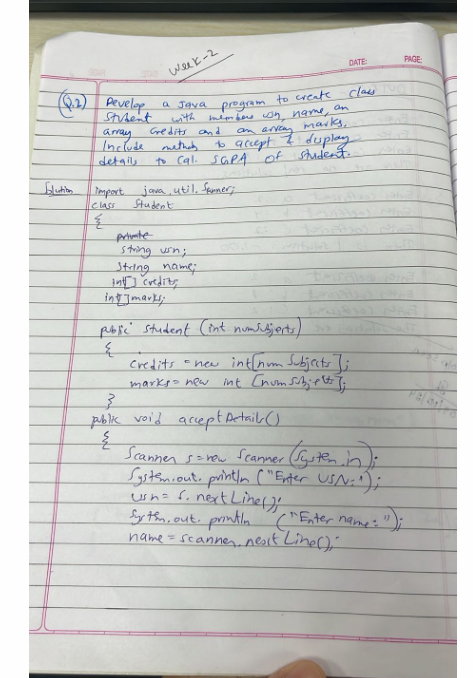 Week-2
DATE:
PAGE:
(Q.2) Develop a Java program to create class
Student with members usn, name, an
array credits and an array marks.
Include methods to accept & display
details to Cal. SGPA of student.
Solution import java.util.Scanner;
class Student
{
private
String usn;
String name;
int[] credits;
int[] marks;
public Student (int numSubjects)
{
credits = new int[num Subjects];
marks = new int [num Subjects];
}
public void acceptDetails()
{
Scanner s = new Scanner (System.in);
System.out.println ("Enter USN:");
usn = s.nextLine();
System.out.println ("Enter name: ");
name = scanner.nextLine();